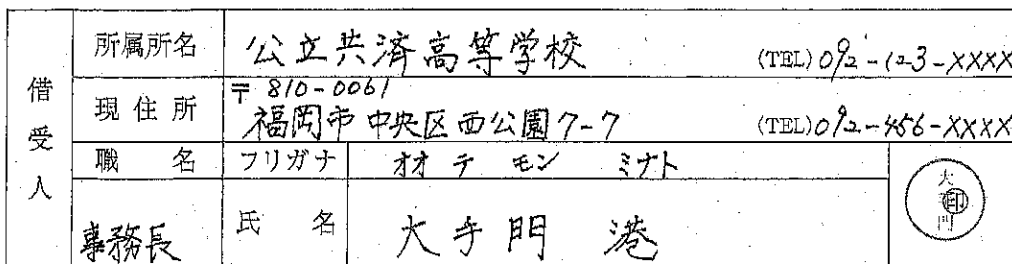 借受人
所属所名 公立共済高等学校 (TEL) 092-123-XXXX
現住所 〒810-0061
福岡市中央区西公園7-7 (TEL) 092-456-XXXX
職名 フリガナ オオテモン ミナト
事務長 氏名 大手門 港
大手門
印